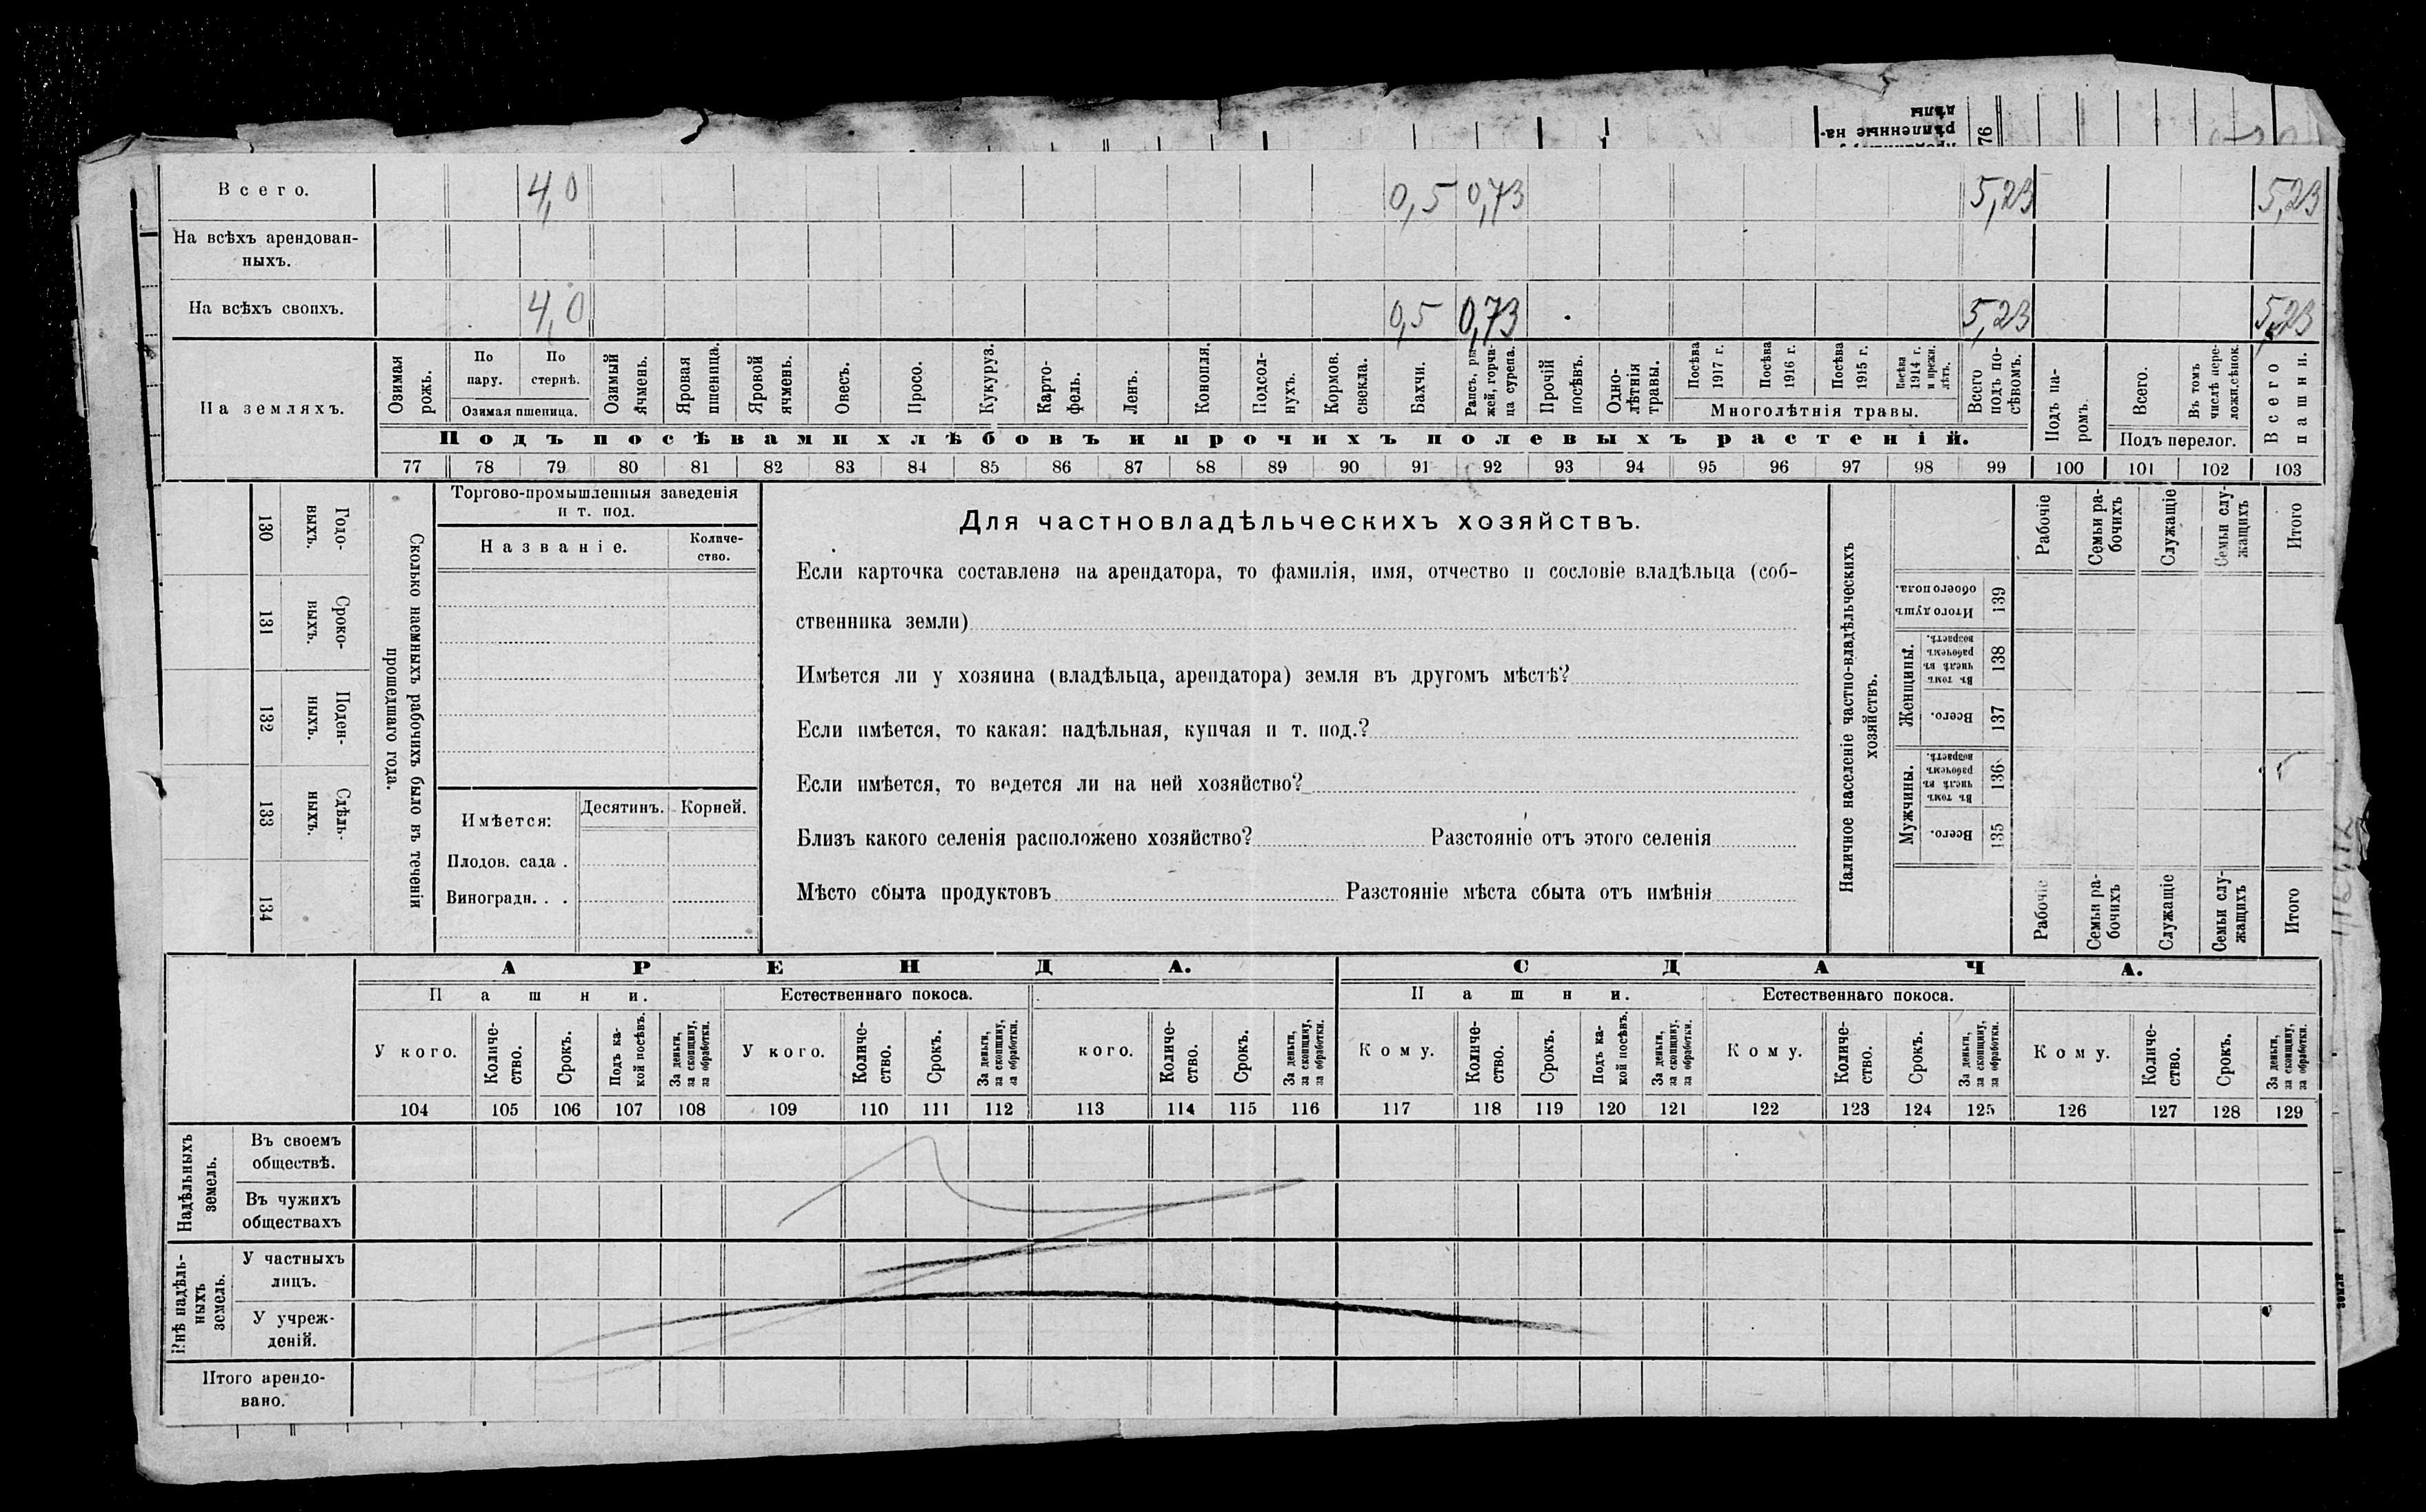 дѣлы
рѣпленные на-
76
Всего. 4,0 0,5 0,73 5,23 5,23
На всѣхъ арендован-
ныхъ.
На всѣхъ своихъ. 4,0 0,5 0,73 5,23 5,23
На земляхъ.
Озимая рожь.
По пару.
По стернѣ.
Озимая пшеница.
Озимый ячмень.
Яровая пшеница.
Яровой ячмень.
Овесъ.
Просо.
Кукуруз.
Карто-
фель.
Ленъ.
Конопля.
Подсол-
нухъ.
Кормов.
свекла.
Бахчи.
Рапсъ, ры-
жей, горчи-
ца сурепа.
Прочій
посѣвъ.
Одно-
лѣтнія
травы.
Посѣва
1917 г.
Посѣва
1916 г.
Посѣва
1915 г.
Посѣва
1914 г.
и прежн.
лѣтъ.
Многолѣтнія травы.
Всего
подъ по-
сѣвомъ.
Подъ па-
ромъ.
Всего.
Въ томъ
числѣ пере-
ложн.сѣнок.
Подъ перелог.
Всего
пашни.
Подъ посѣвами хлѣбовъ и прочихъ полевыхъ растеній.
77 78 79 80 81 82 83 84 85 86 87 88 89 90 91 92 93 94 95 96 97 98 99 100 101 102 103
130 Годо-
ныхъ.
131 Сроко-
ныхъ.
132 Поден-
ныхъ.
133 Сдѣль-
ныхъ.
134
Сколько наемныхъ рабочихъ было въ теченіи
прошедшаго года.
Торгово-промышленныя заведенія
и т. под.
Названіе.
Количе-
ство.
Имѣется:
Десятинъ.
Корней.
Плодов. сада .
Виноградн. . .
Для частновладѣльческихъ хозяйствъ.
Если карточка составлена на арендатора, то фамилія, имя, отчество и сословіе владѣльца (соб-
ственника земли)
Имѣется ли у хозяина (владѣльца, арендатора) земля въ другомъ мѣстѣ?
Если имѣется, то какая: надѣльная, купчая и т. под.?
Если имѣется, то ведется ли на ней хозяйство?
Близъ какого селенія расположено хозяйство? Разстояніе отъ этого селенія
Мѣсто сбыта продуктовъ Разстояніе мѣста сбыта отъ имѣнія
Наличное населеніе частно-владѣльческихъ
хозяйствъ.
Рабочіе
Семьи ра-
бочихъ
Служащіе
Семьи слу-
жащихъ
Итого
Итого душъ
обоего пола.
139
Женщины.
Въ томъ
числѣ въ
рабочемъ
возрастѣ.
138
Всего.
137
Мужчины.
Въ томъ
числѣ въ
рабочемъ
возрастѣ.
136
Всего.
135
Рабочіе
Семьи ра-
бочихъ
Служащіе
Семьи слу-
жащихъ
Итого
АРЕНДА.
СДАЧА.
Пашни.
Естественнаго покоса.
Пашни.
Естественнаго покоса.
У кого.
Количе-
ство.
Срокъ.
Подъ ка-
кой посѣвъ.
За деньги,
за скопщину,
за обработки.
У кого.
Количе-
ство.
Срокъ.
За деньги,
за скопщину,
за обработки.
кого.
Количе-
ство.
Срокъ.
За деньги,
за скопщину,
за обработки.
Кому.
Количе-
ство.
Срокъ.
Подъ ка-
кой посѣвъ.
За деньги,
за скопщину,
за обработки.
Кому.
Количе-
ство.
Срокъ.
За деньги,
за скопщину,
за обработки.
Кому.
Количе-
ство.
Срокъ.
За деньги,
за скопщину,
за обработки.
104 105 106 107 108 109 110 111 112 113 114 115 116 117 118 119 120 121 122 123 124 125 126 127 128 129
Надѣльныхъ
земель.
Въ своемъ
обществѣ.
Въ чужихъ
обществахъ
Внѣ надѣль-
ныхъ
земель.
У частныхъ
лицъ.
У учреж-
деній.
Итого арендо-
вано.